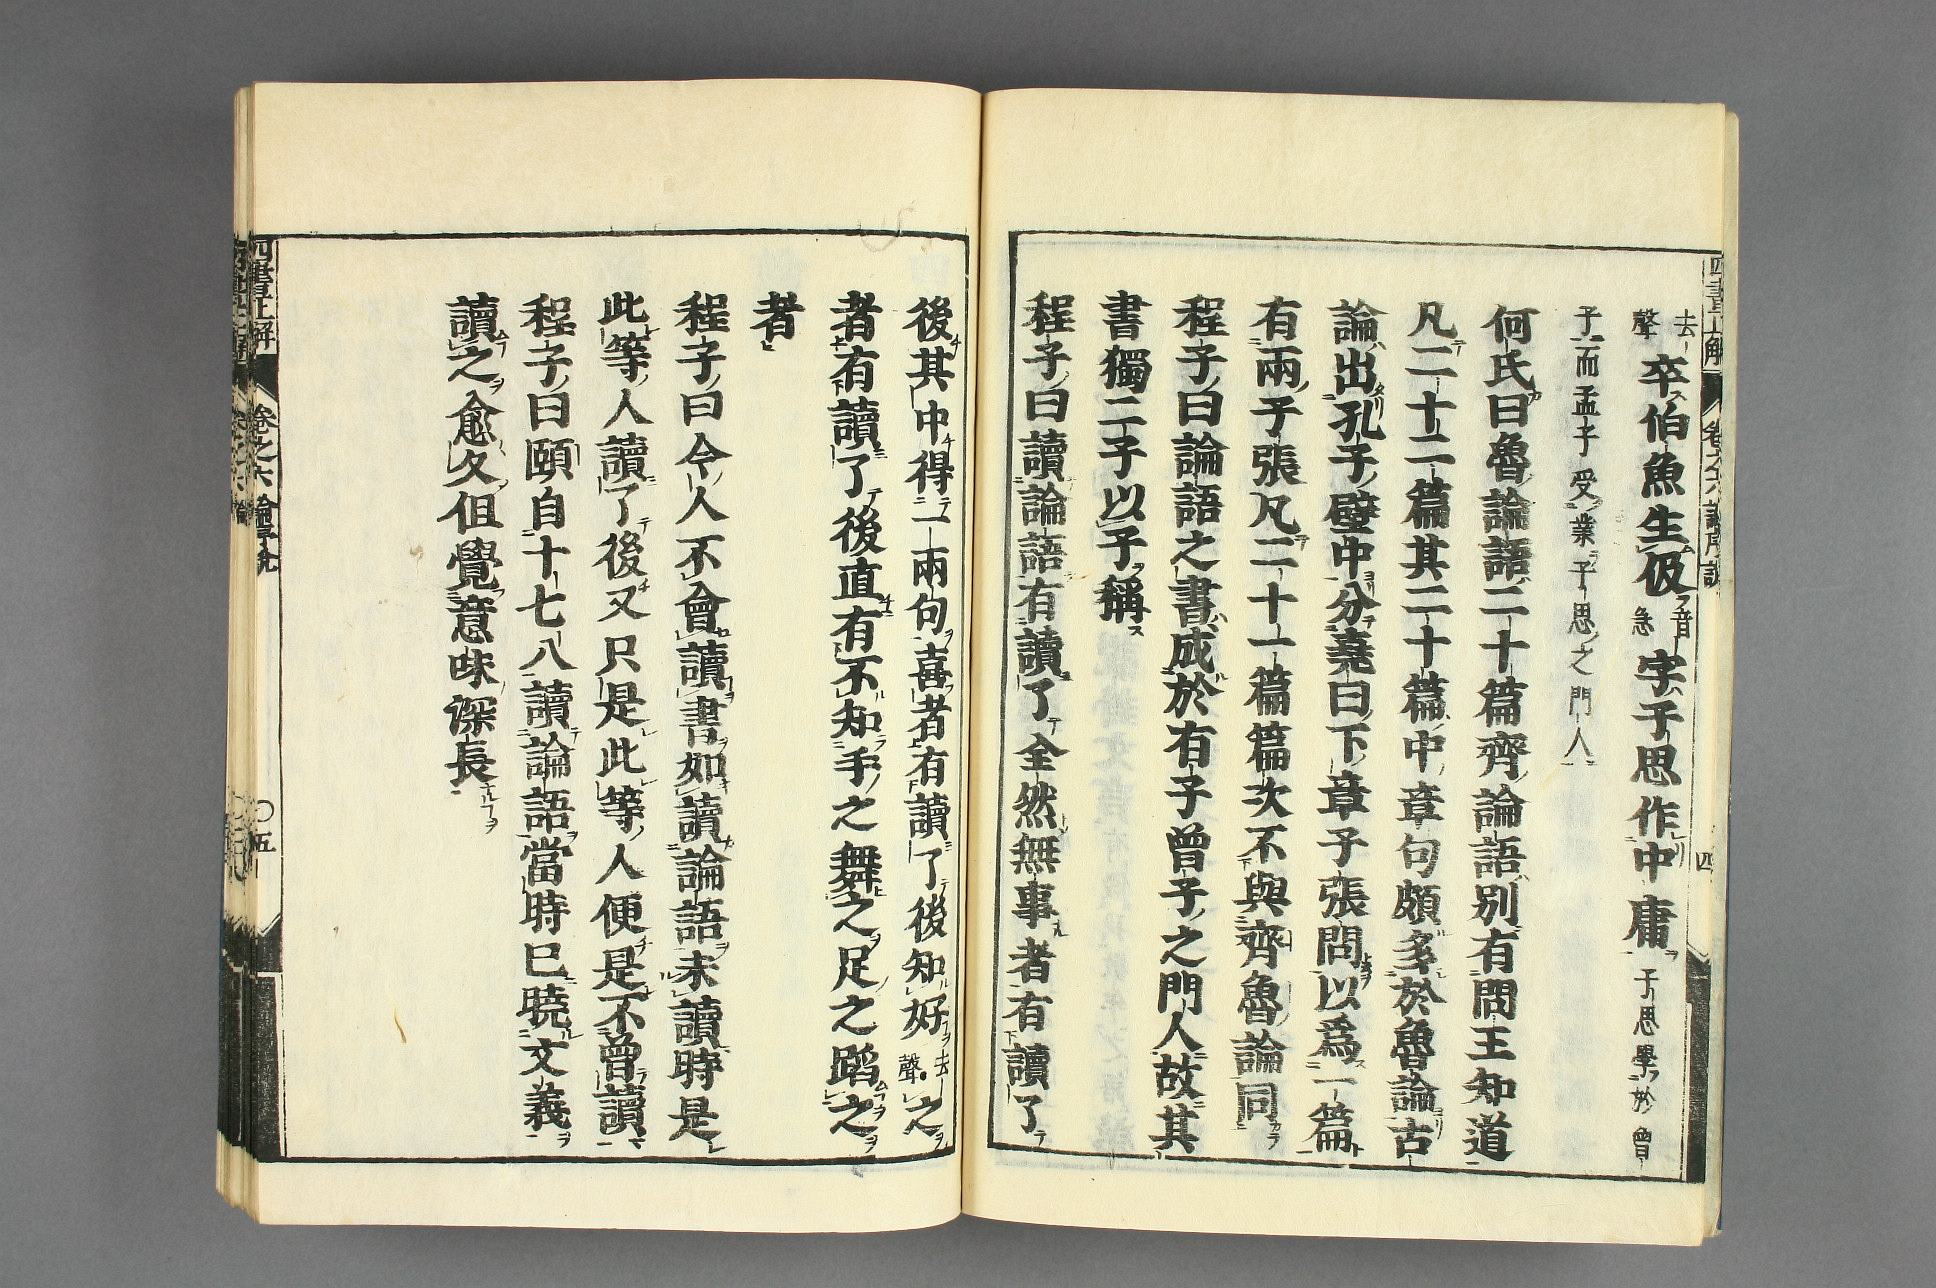 去聲卒伯魚生伋音急字子思作中庸子思學於曾
子而孟子受業子思之門人
何氏曰魯論語二十篇齊論語別有問王知道
凡二十二篇其二十篇中章句頗多於魯論古
論出孔子壁中分堯曰下章子張問以爲一篇
有兩子張凡二十一篇篇次不與齊魯論同
程子曰論語之書成於有子曾子之門人故其
書獨二子以子稱
程子曰讀論語有讀了全然無事者有讀了
後其中得一兩句喜者有讀了後知好去聲之
者有讀了後直有不知手之舞之足之蹈之
者
程子曰今人不會讀書如讀論語未讀時是
此等人讀了後又只是此等人便是不曾讀
程子曰頤自十七八讀論語當時已曉文義
讀之愈久但覺意味深長
四書正解 卷之六 論序說 〇五